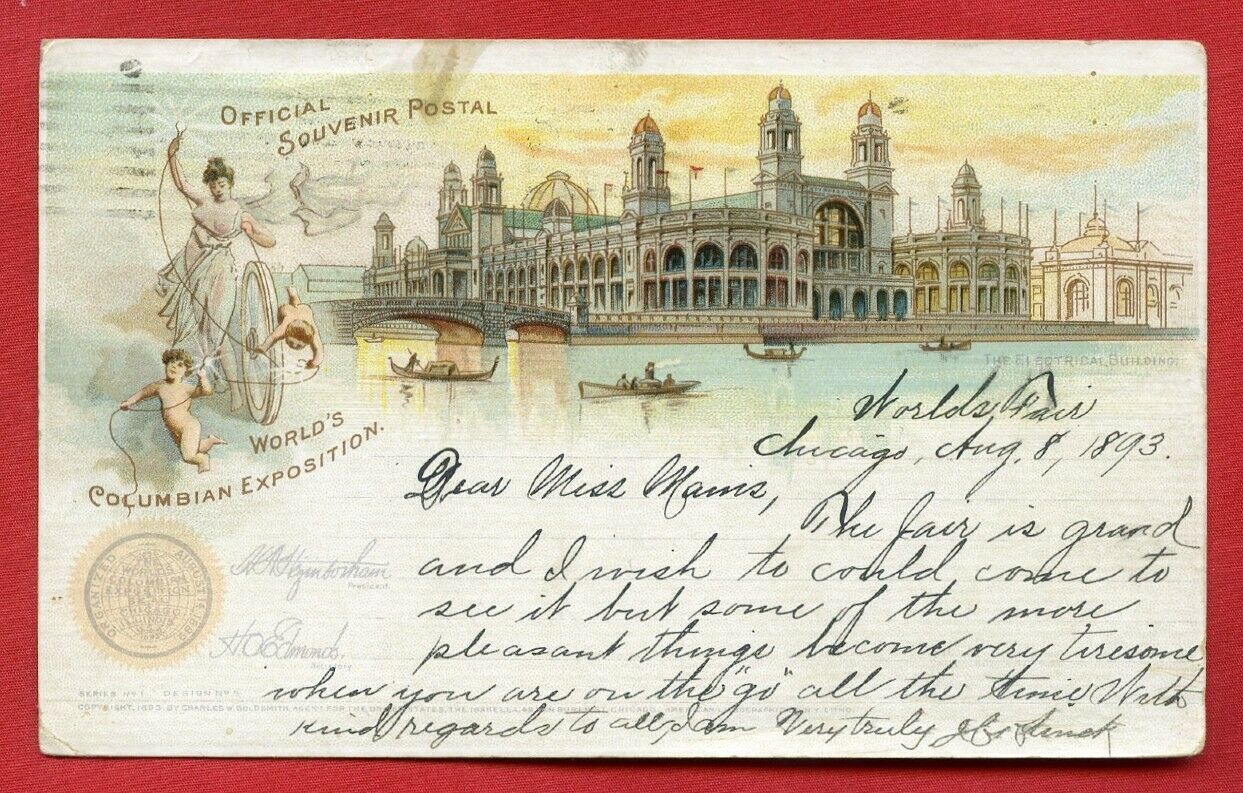 OFFICIAL
SOUVENIR POSTAL
WORLD'S
COLUMBIAN EXPOSITION.
THE ELECTRICAL BUILDING.
Worlds Fair
Chicago, Aug. 8, 1893.
Dear Miss Mains,
The fair is grand
and I wish to could come to
see it but some of the more
pleasant things become very tiresome
when you are on the "go" all the time With
kind regards to all, I am Very truly
ORGANIZED AUGUST
WORLD'S
COLUMBIAN
EXPOSITION
President.
Secretary
SERIES No 1. DESIGN No 5
COPYRIGHT, 1893, BY CHARLES W. GOLDSMITH, AGENT FOR THE UNITED STATES, CHICAGO. AMERICAN LITHOGRAPHIC CO. N.Y. LITHO.